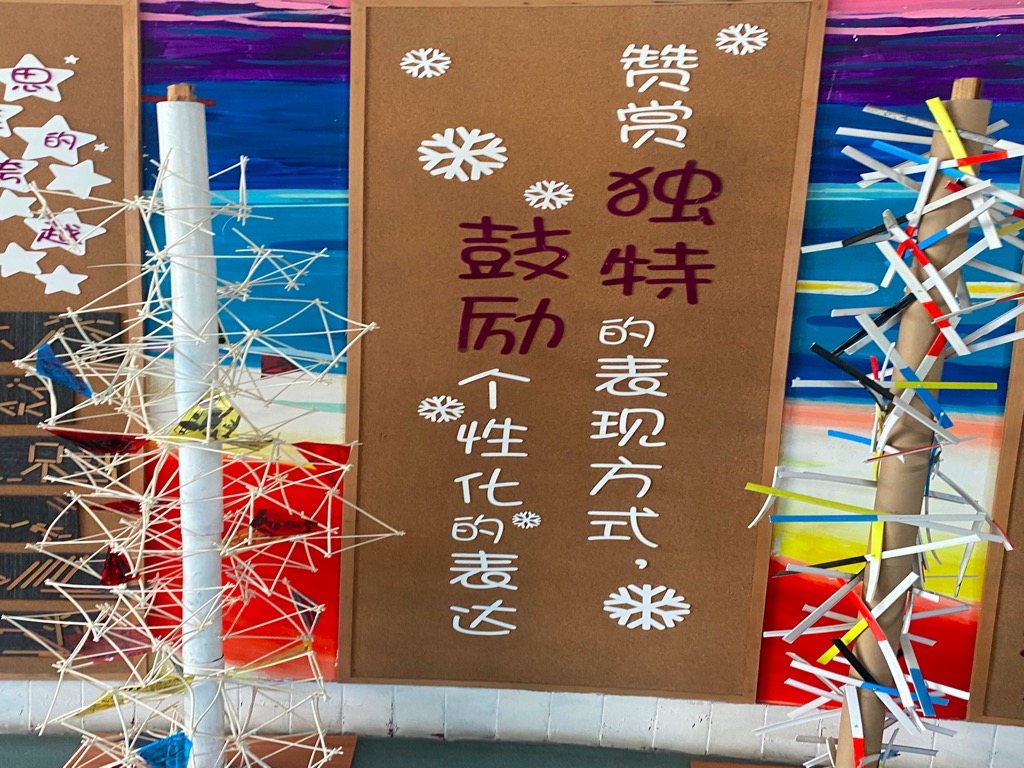 赞赏独特的表现方式，
鼓励个性化的表达
思
的
越